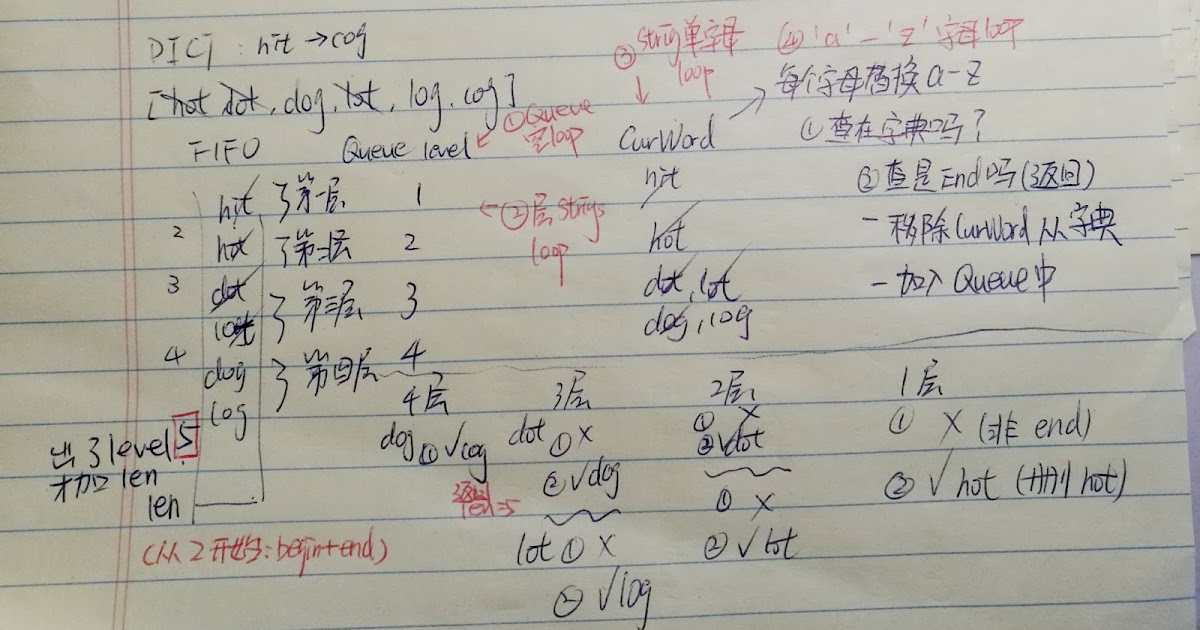 DICT : hit → cog
[hot dot, dog, lot, log, cog]
FIFO Queue level
① Queue
空loop
③ String单字母
loop
④ 'a' — 'z' 字母loop
CurWord
每个字母替换 a-z
① 查在字典吗?
② 查是End吗(返回)
- 移除CurWord从字典
- 加入Queue中
hit 第一层 1
2 hot 第二层 2
3 dot
lot 第三层 3
4 dog
log 第四层 4
② 层 Strings
loop
hit
hot
dot, lot
dog, log
出了level 5
才加 len
len
(从2开始: begin+end)
4层
dog ① √cog
返回
len=5
3层
dot ① X
② √dog
lot ① X
② √log
2层
① X
② √dot
① X
② √lot
1层
① X (非 end)
② √ hot (删 hot)